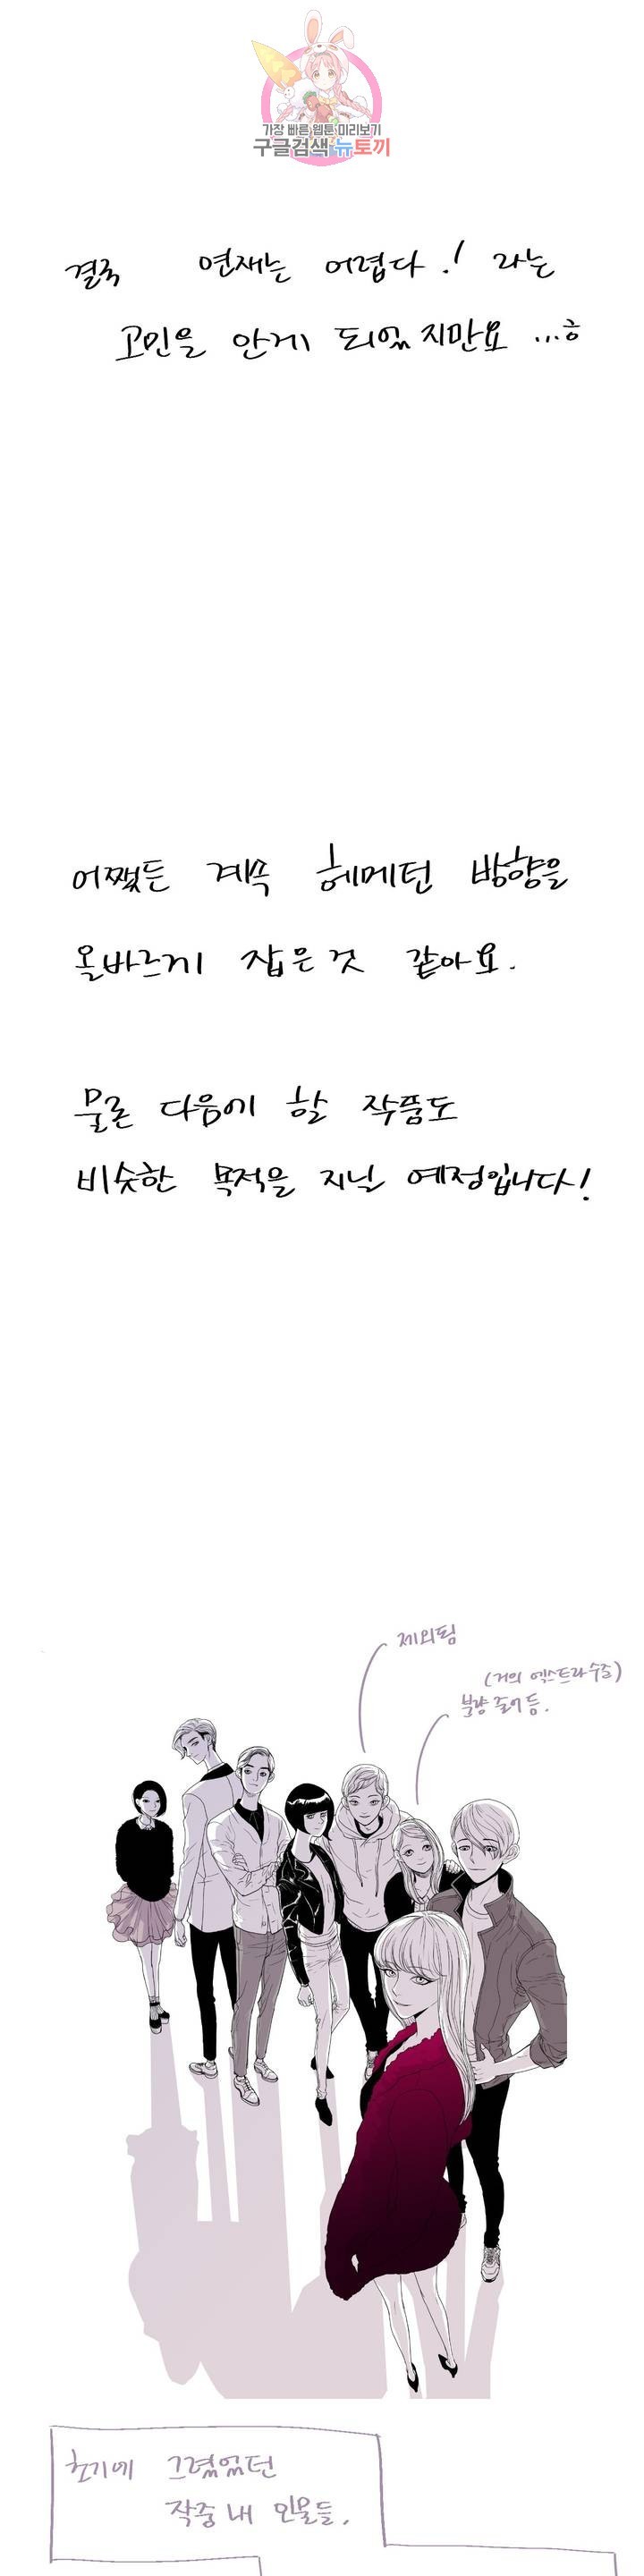 가장 빠른 웹툰 미리보기
구글검색 뉴토끼
결국 연재는 어렵다! 라는
고민을 안게 되었지만요 ...ㅎ
어쨌든 계속 헤메던 방향을
올바르게 잡은것 같아요.
물론 다음에 할 작품도
비슷한 목적을 지닐 예정입니다!
제외됨
(거의 엑스트라수준)
분량 줄어듬.
초기에 그렸었던
작중 내 인물들.